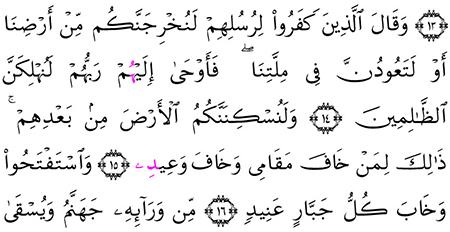 ﴿١٣﴾ وَقَالَ ٱلَّذِينَ كَفَرُوا۟ لِرُسُلِهِمْ لَنُخْرِجَنَّكُم مِّنْ أَرْضِنَا
أَوْ لَتَعُودُنَّ فِى مِلَّتِنَا ۖ فَأَوْحَىٰٓ إِلَيْهُمْ رَبُّهُمْ لَنُهْلِكَنَّ
ٱلظَّـٰلِمِينَ ﴿١٤﴾ وَلَنُسْكِنَنَّكُمُ ٱلْأَرْضَ مِنۢ بَعْدِهِمْ ۚ
ذَٰلِكَ لِمَنْ خَافَ مَقَامِى وَخَافَ وَعِيدِۦ ﴿١٥﴾ وَٱسْتَفْتَحُوا۟
وَخَابَ كُلُّ جَبَّارٍ عَنِيدٍ ﴿١٦﴾ مِّن وَرَآئِهِۦ جَهَنَّمُ وَيُسْقَىٰ